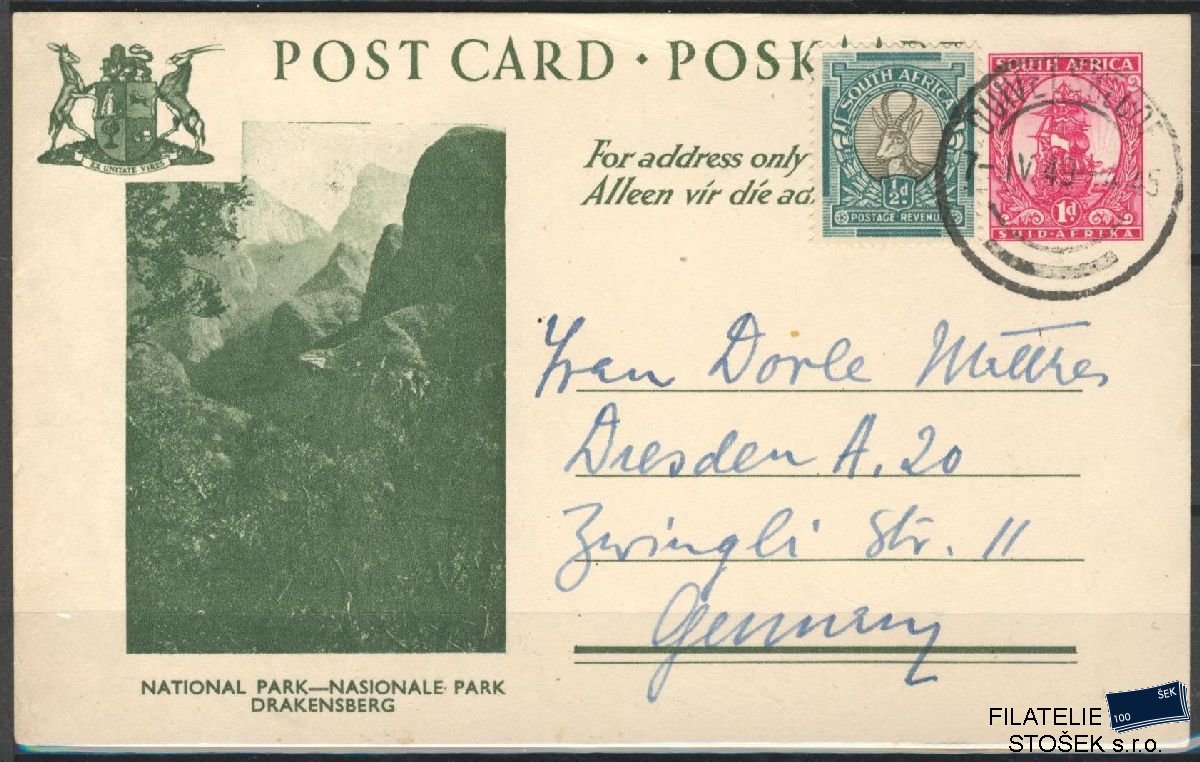 POST CARD · POSK
EX UNITATE VIRES
SOUTH AFRICA
½d
POSTAGE REVENUE
SOUTH AFRICA
1d
SUID-AFRIKA
7-IV 49
For address only
Alleen vir die ad
Frau Dorle Matthes
Dresden A. 20
Zwingli Str. 11
Germany
NATIONAL PARK—NASIONALE PARK
DRAKENSBERG
FILATELIE
100 ŠEK
STOŠEK s.r.o.